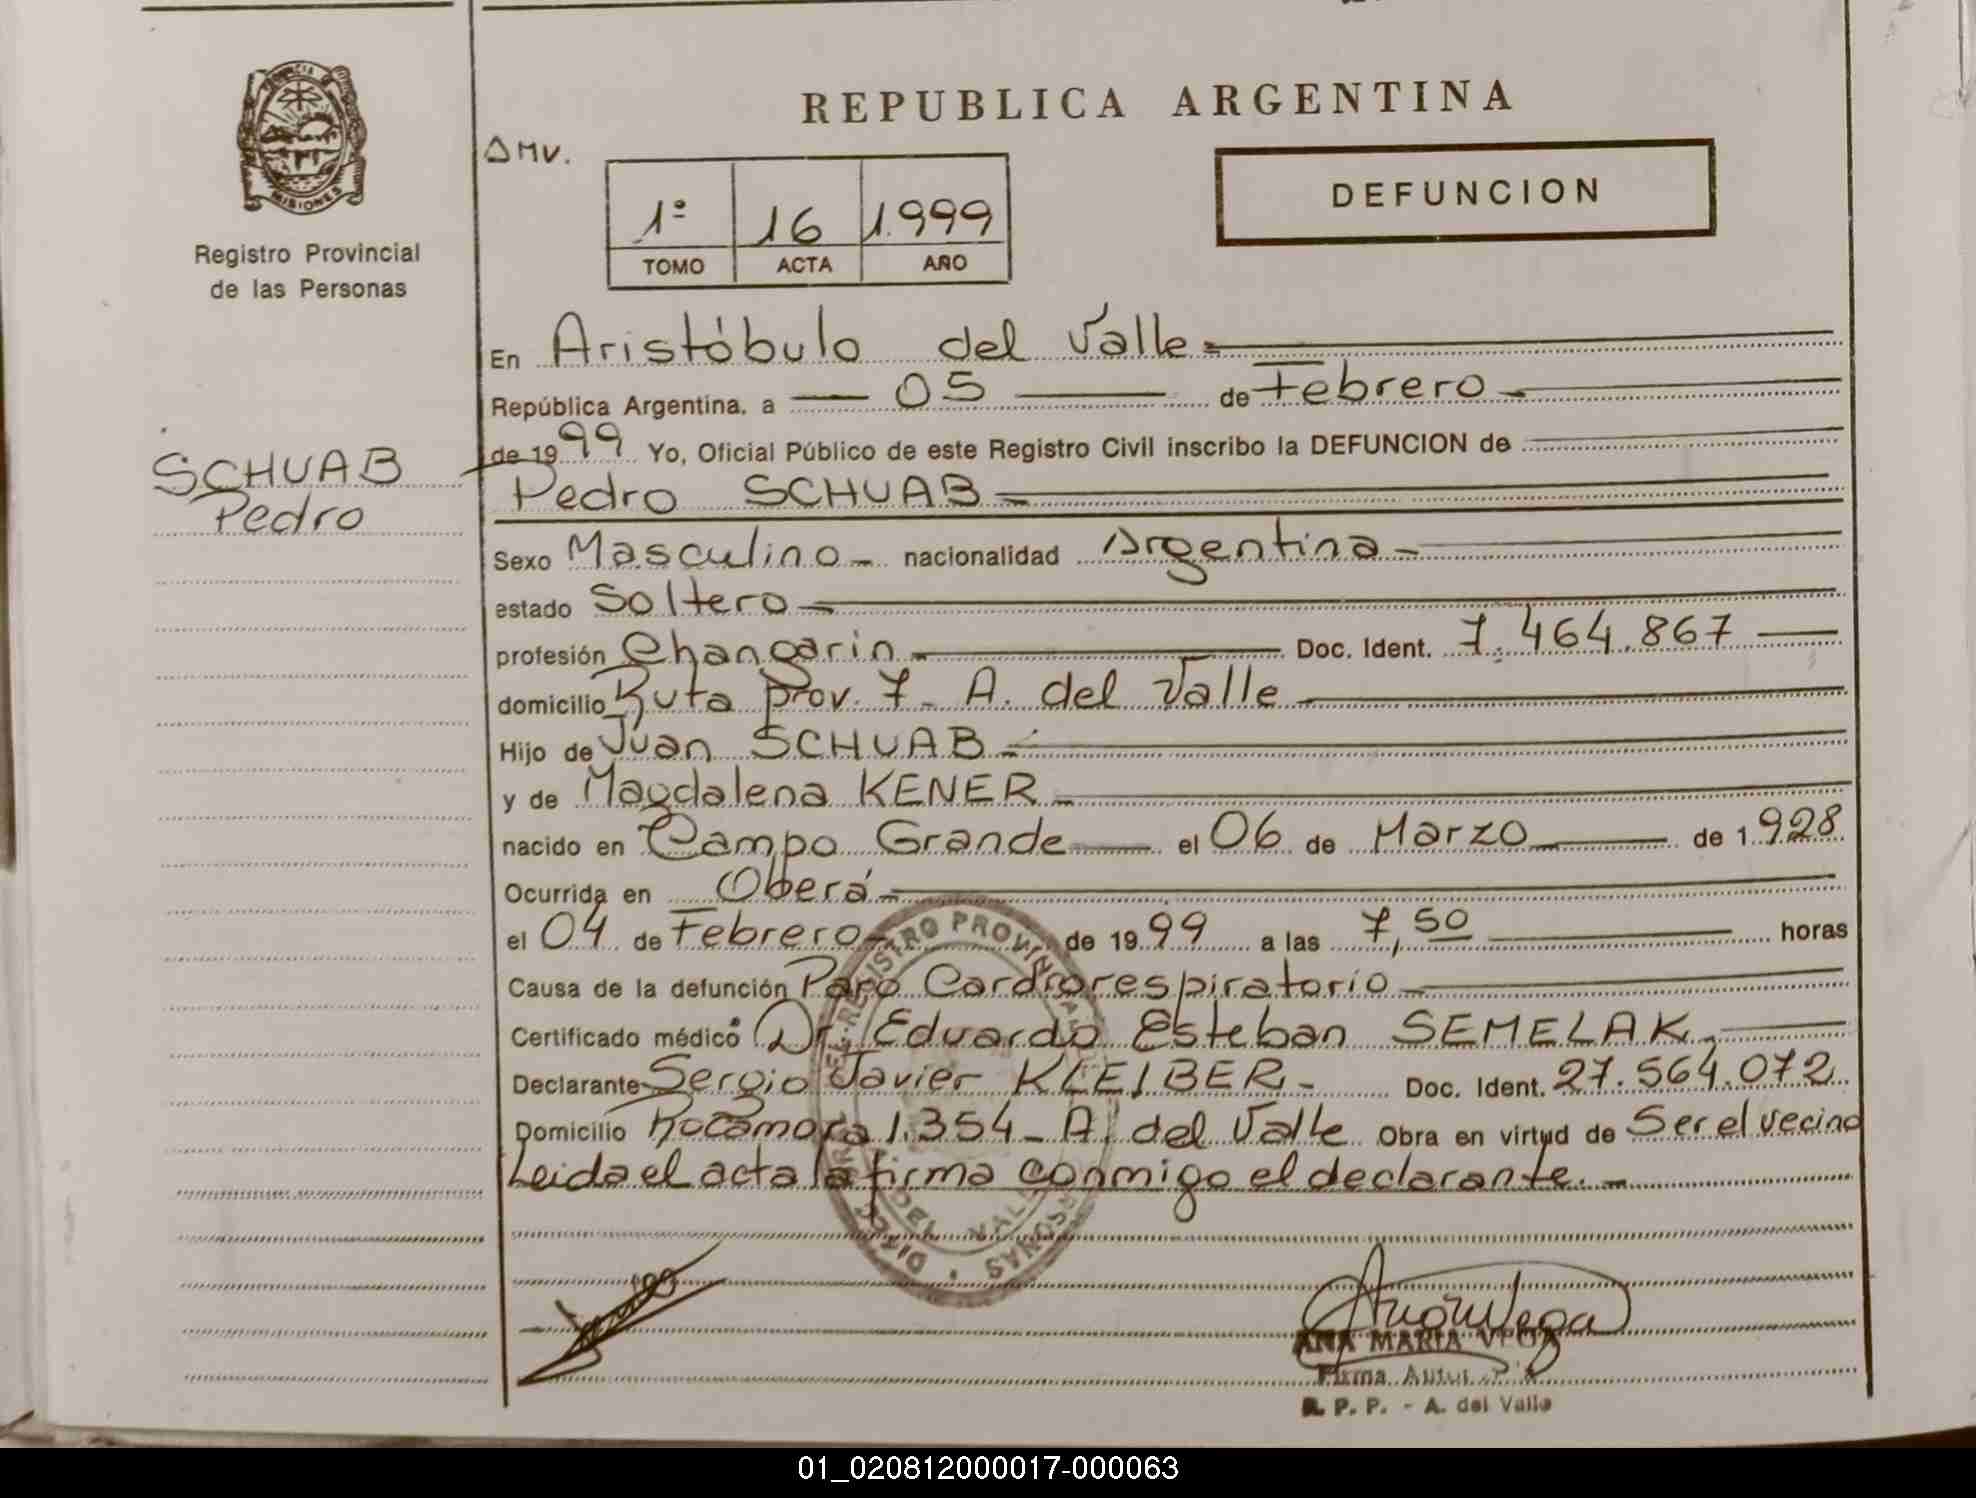 REPUBLICA ARGENTINA
PROVINCIA D
MISIONES
Registro Provincial
de las Personas
AMV.
1º 16 1.999
TOMO ACTA AÑO
DEFUNCION
En Aristóbulo del Valle
República Argentina, a 05 de Febrero
de 1999 Yo, Oficial Público de este Registro Civil inscribo la DEFUNCION de
SCHUAB
Pedro
Pedro SCHUAB
Sexo Masculino nacionalidad Argentina
estado Soltero
profesión Changarin Doc. Ident. 7.464.867
domicilio Ruta prov. 7 - A. del Valle
Hijo de Juan SCHUAB
y de Magdalena KENER
nacido en Campo Grande el 06 de Marzo de 1.928
Ocurrida en Oberá
el 04 de Febrero de 1999 a las 7,50 horas
Causa de la defunción Paro Cardiorespiratorio
Certificado médico Dr. Eduardo Esteban SEMELAK
Declarante Sergio Javier KLEIBER Doc. Ident. 27.564.072
Domicilio Rocamora 1.354 - A. del Valle Obra en virtud de Ser el vecino
Leida el acta la firma conmigo el declarante.
REGISTRO PROVINCIAL
DEL VALLE
ANA MARIA VEGA
Firma
R. P. P. - A. del Valle
01_020812000017-000063